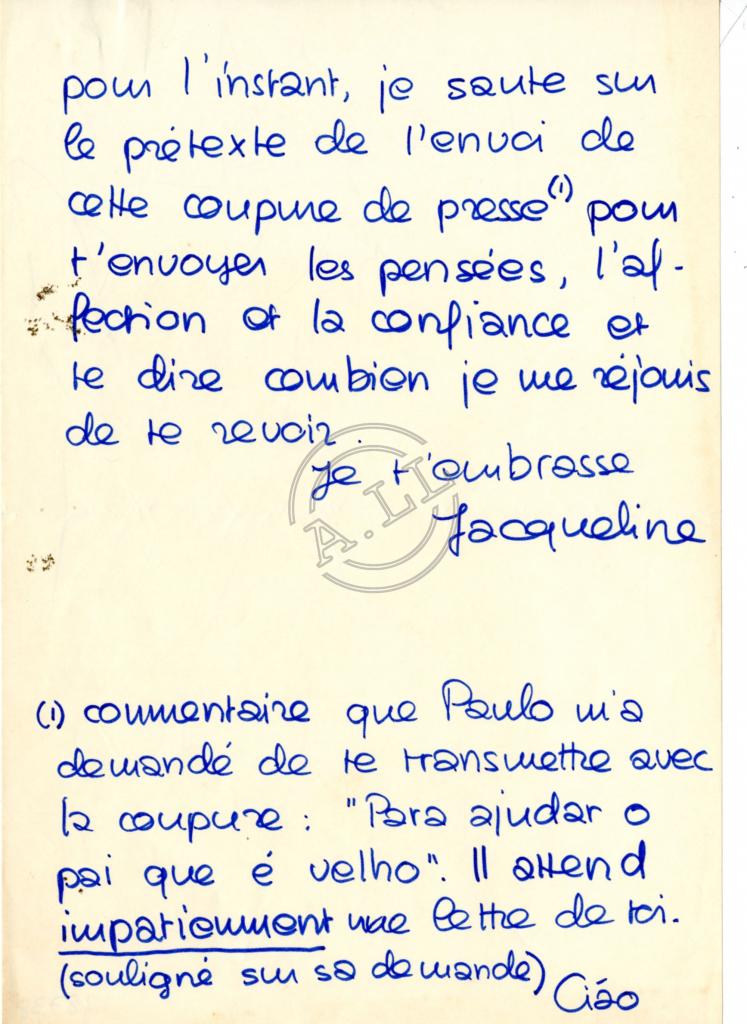 pour l'instant, je saute sur
le prétexte de l'envoi de
cette coupure de presse(1) pour
t'envoyer les pensées, l'af-
fection et la confiance et
te dire combien je me réjouis
de te revoir.
Je t'embrasse
A.LI
Jacqueline
(1) commentaire que Paulo m'a
demandé de te transmettre avec
la coupure : "Para ajudar o
pai que é velho". Il attend
impatiemment une lettre de toi.
(souligné sur sa demande) Ciáo